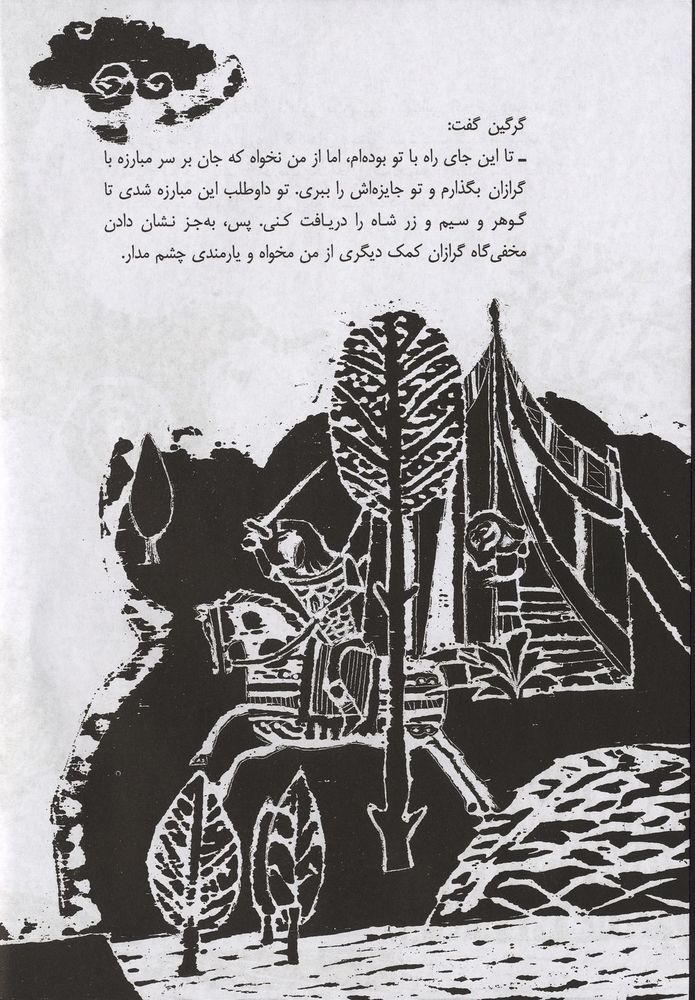 گرگین گفت:
ـ تا این جای راه با تو بوده‌ام، اما از من نخواه که جان بر سر مبارزه با
گرازان بگذارم و تو جایزه‌اش را ببری. تو داوطلب این مبارزه شدی تا
گوهر و سیم و زر شاه را دریافت کنی. پس، به‌جز نشان دادن
مخفی‌گاه گرازان کمک دیگری از من مخواه و یارمندی چشم مدار.